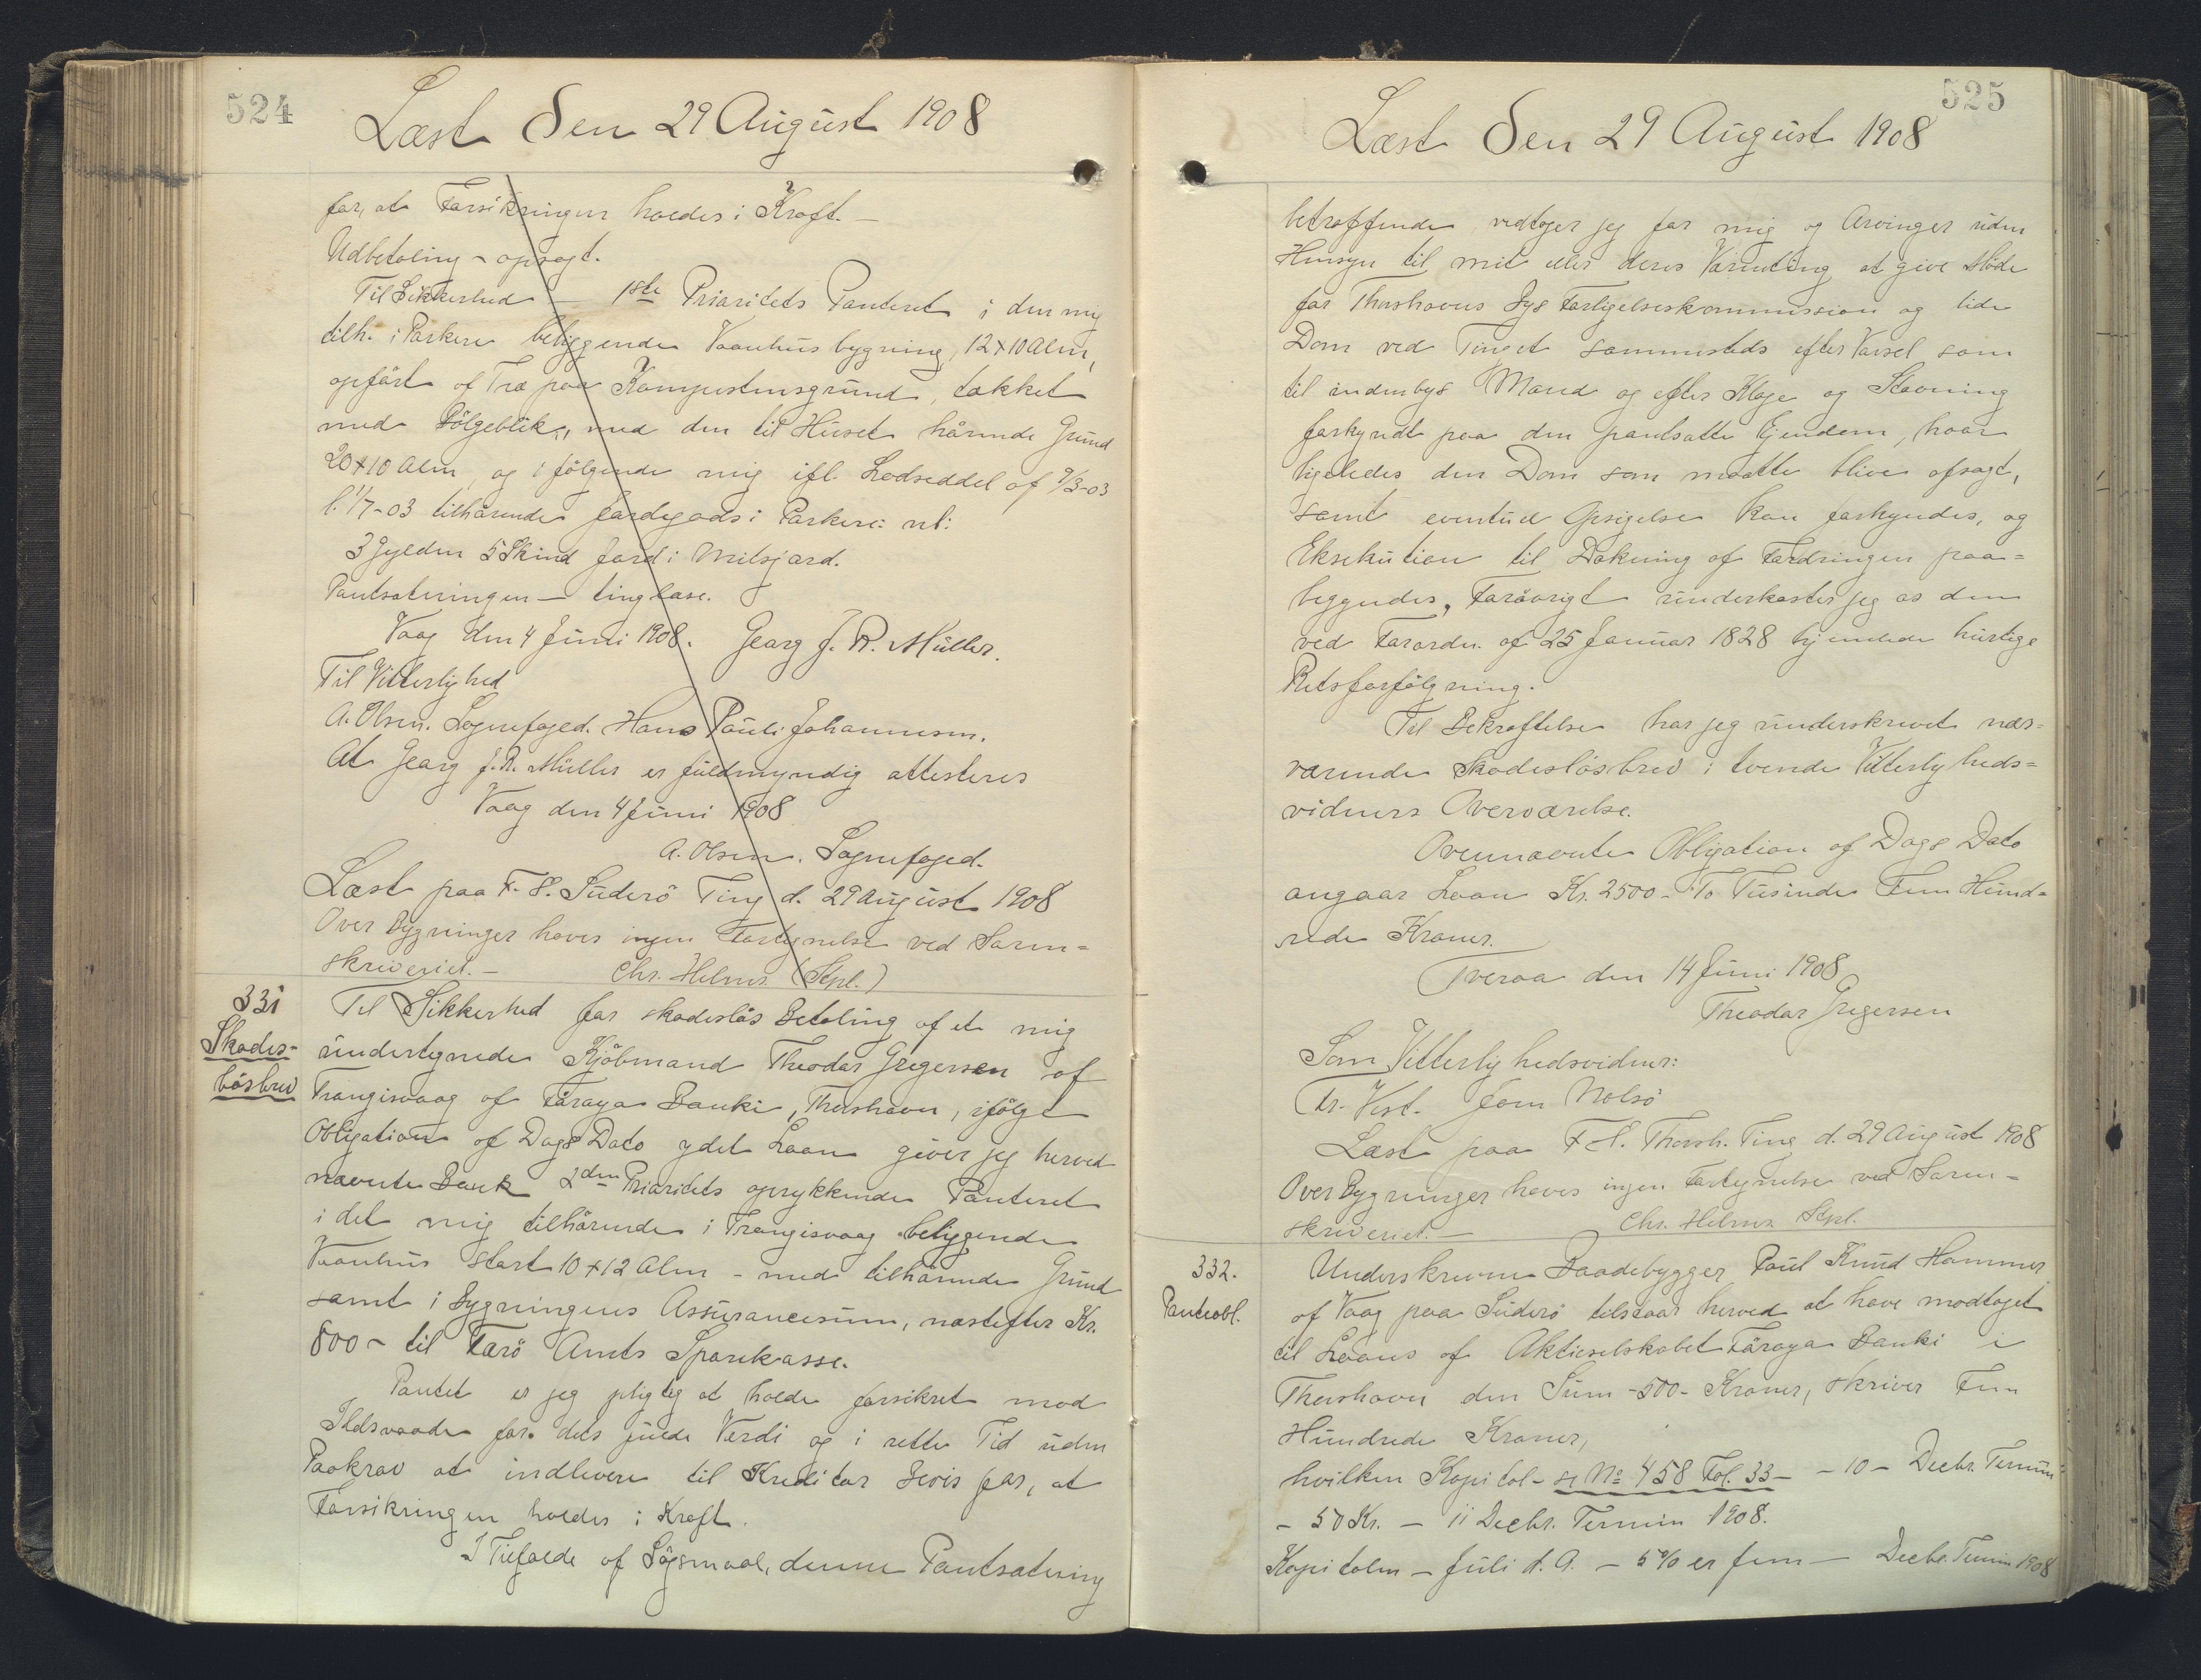 524
Læst Den 29 August 1908
for, at Forsikringen holdes i Kraft. —
Udbetaling - opsagt.
Til Sikkerhed — 1ste Prioritets Panteret i den mig
tilh. i Porkere beliggende Vaanhusbygning, 12 x 10 Alm,
opført af Træ paa Kampestensgrund, takket
med Bølgeblik, med den til Huset hørende Grund
20 x 10 Alm og i følgende mig ifl. Lodseddel af 9/3-03
l. 1/7-03 tilhørende Jordegods i Porkere: nl:
3 Gylden 5 Skind Jord i Mitsjord.
Pantsætningen — tinglæse.
Vaag den 4 Juni 1908. Georg J. R. Müller.
Til Vitterlighed
A. Olsen. Sognefoged. Hans Pauli Johannesen.
At Georg J. R. Müller er fuldmyndig attesteres
Vaag den 4 Juni 1908
A. Olsen. Sognefoged.
Læst paa F. H. Suderö Ting d. 29 August 1908
Over Bygninger haves ingen Forsynelse ved Soren-
skriveriet. — Chr. Helms. (Stpl.)
331
Skades-
løsbrev
Til Sikkerhed for skadesløs Betaling af et mig
undertegnede Kjøbmand Theodor Gregersen af
Trangisvaag af Føroya Banki, Thorshavn, ifølge
Obligation af Dags Dato ydet Laan giver jeg herved
nævnte Bank 2den Prioritets oprykkende Panteret
i det mig tilhørende i Trangisvaag beliggende
Vaanhus stort 10 x 12 Alm - med tilhørende Grund
samt i Bygningens Assurancesum, næstefter Kr.
800 - til Færø Amts Sparekasse.
Pantet er jeg pligtig at holde forsikret mod
Ildsvaade for dets fulde Værdi og i rette Tid uden
Paakrav at indlevere til Kreditor Bevis for, at
Forsikringen holdes i Kraft.
I Tilfælde af Søgsmaal, denne Pantsætning
525
Læst Den 29 August 1908
betræffende, vedtager jeg for mig og Arvinger uden
Hensyn til mit eller deres Værneting at give Møde
for Thorshavns Bys Forligelseskommission og lide
Dom ved Tinget sammesteds efter Varsel som
til indenbys Mand og efter Klage og Stævning
forkyndt paa den pantsatte Ejendom, hvor
ligeledes den Dom som maatte blive afsagt,
samt eventuel Opsigelse kan forkyndes, og
Eksekution til Dækning af Fordringen paa-
begyndes, Forøvrigt underkaster jeg os den
ved Forordn. af 25 Januar 1828 hjemlede hurtige
Retsforfølgning.
Til Bekræftelse har jeg underskrevet nær-
værende Skadesløsbrev i tvende Vitterligheds-
vidners Overværelse.
Ovennævnte Obligation af Dags Dato
angaar Laan Kr. 2500 - To Tusinde Fem Hund-
rede Kroner.
Tveraa den 14 Juni 1908
Theodor Gregersen
Som Vitterlighedsvidner:
Fr. Vest. Joen Nolsö
Læst paa F. H. Thorsh. Ting d. 29 August 1908
Over Bygninger haves ingen Forsynelse ved Soren-
skriveriet. — Chr. Helms. Stpl.
332.
Panteobl.
Underskrevne Baadebygger Poul Knud Hammer
af Vaag paa Suderö tilstaar herved at have modtaget
til Laans af Aktieselskabet Føroya Banki i
Thorshavn den Sum - 500 - Kroner, skriver Fem
Hundrede Kroner,
hvilken Kapital - se No 458 Fol. 33 — - 10 - Decbr. Termin
- 50 Kr. — 11 Decbr. Termin 1908.
Kapitalen — Juli d. A. — 5% er fem — Decbr. Termin 1908